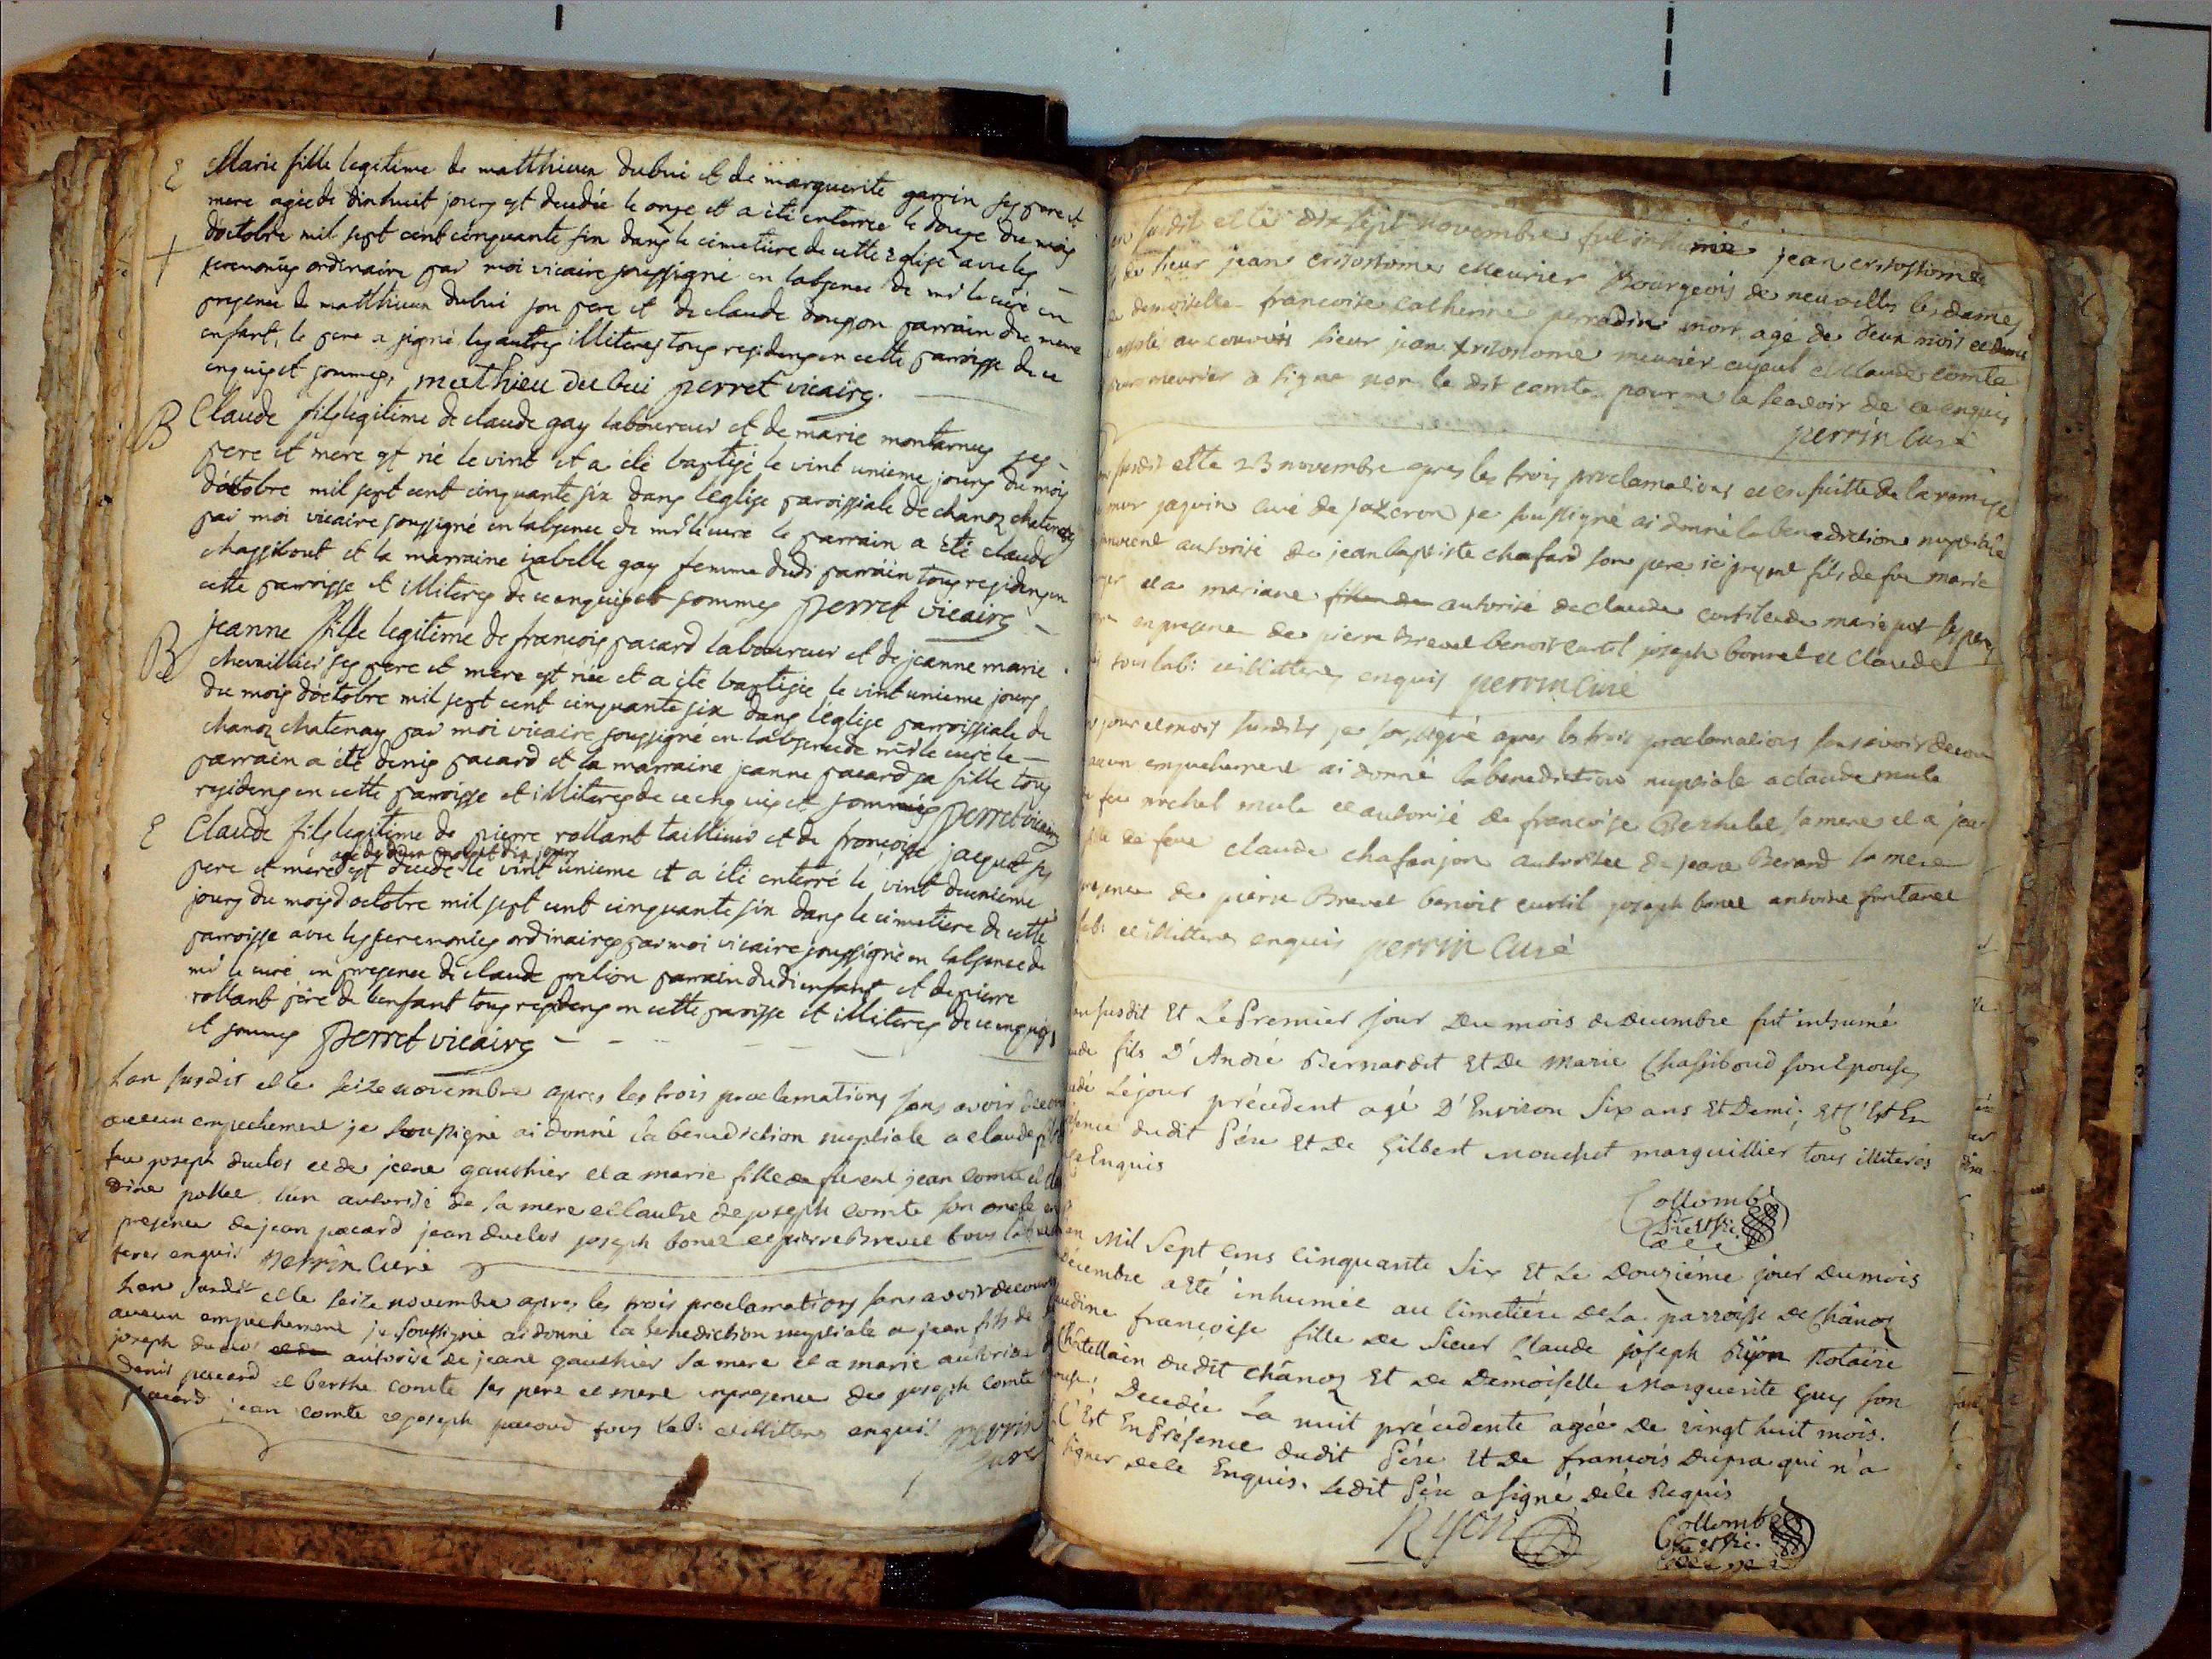 E Marie fille legitime de matthieux dubui et de marguerite garrin ses pere et
mere agée de dixhuit jours est decedée le onze et a été enterree le douze du mois
d'octobre mil sept cent cinquante six dans le cimetiere de cette eglise avec les
ceremonies ordinaire par moi vicaire soussigné en labsence de mr le curé en
presence de matthieux dubui son pere et de claude parrain du meme
enfant, le pere a signé les autres illiteres tous residens en cette parroisse de ce
enquis et sommes, mathieu dubui perret vicaire.
B Claude fils legitime de claude gay laboureur et de marie montarnes ses
pere et mere est né le vint et a été baptisé le vint unieme jours du mois
d'octobre mil sept cent cinquante six dans leglise paroissiale de chanoz chatenay
par moi vicaire soussigné en labsence de mr le curé le parrain a été claude
chassibout et la marraine izabelle gay femme dudi parrain tous residens en
cette parroisse et illiteres de ce enquis et sommes perret vicaire
B jeanne fille legitime de francois pacard laboureur et de jeanne marie
chevaillier ses pere et mere est née et a été baptisée le vint unieme jours
du mois d'octobre mil sept cent cinquante six dans l'église parroissiale de
chanoz chatenay par moi vicaire soussigné en labsence de mr le curé le
parrain a été denis pacard et la marraine jeanne pacard sa fille tous
residens en cette parroisse et illiteres de ce enquis et sommés perret vicaire
E Claude fils legitime de pierre rollant tailleur et de francoise jacquet ses
agé de deux mois et dix jours
pere et mere est decedé le vint unieme et a été enterré le vint deuxieme
jours du mois d'octobre mil sept cent cinquante six dans le cimetiere de cette
parroisse avec les ceremonies ordinaires par moi vicaire soussigné en labsence de
mr le curé en presence de claude parrain dudi enfant et de pierre
rollant père de lenfant tous residens en cette paroisse et illiteres de ce enquis
et sommes perret vicaire
Lan susdit et le seize novembre apres les trois proclamations sans avoir decouv
aucun empechement je soussigné ai donné la benediction nuptiale a claude fils
feu joseph duclos et de jeane gauthier et a marie fille de jean comte et
dine pollet lun autorisé de sa mere et lautre de joseph comte son oncle en
presence de jean pacard jean duclos joseph bonet et pierre brevet tous lab:
teres enquis perrin curé
Lan susdit et le seize novembre apres les trois proclamations sans avoir decouvert
aucun empechement je soussigné ai donné la benediction nuptiale a jean fils de
joseph duclos et de autorisé de jeane gauthier sa mere et a marie autorisée
denis pacard et berthe comte ses pere et mere en presence de joseph comte
pacard jean comte et joseph pacard tous lab: et illitteres enquis perrin
curé
an susdit et le dix sept novembre fut inhumé jean crisostome
de sieur jean crisostome meurier Bourgeois de neuville les dames
demoiselle francoise catherine perradin mort agé de deux mois et demi
au couvois sieur jean crisostome meurier ayeul et claude comte
meurier a signé non le dit comte pour ne le scavoir de ce enquis
perrin curé
susdit et le 23 novembre apres les trois proclamations et en suitte de la remise
jaquin curé de je soussigné ai donné la benediction nuptiale
autorisé de jean baptiste chafard son pere ici present fils de feu marie
et a mariane fille de autorisé de claude curtil et de marie put ses pere
en presence de pierre brevet benoit curtil joseph bonnet et claude
tous lab: et illitteres enquis perrin curé
jour et mois susdits je soussigné apres les trois proclamations sans avoir decou
aucun empechement ai donné la benediction nuptiale a claude mule
feu michel mule et autorisé de françoise Berthelet sa mere et a jea
fille de feue claude chafanjon autorisee de jeane Berard sa mere
presence de pierre Brevet benoit curtil joseph bonet antoine fontanel
lab: et illitteres enquis perrin curé
an susdit Et Le Premier jour Du mois de decembre fut inhumé
fils D'André Bernardet Et De Marie Chassiboud son Epouse,
Le jour précédent agé D'Environ Six ans Et Demi, Et C'Est En
sence dudit Pére Et De Gilbert Mouchet marguillier tous illiterés
Enquis
Collomb
Prêtre
an Mil Sept Cens Cinquante Six Et Le Douziéme jour Du mois
Décembre a été inhumée au Cimetiére De La parroisse De Chânoz
audine françoise fille De Sieur Claude joseph Ryon Notaire
Châtellain dudit Chânoz Et De Demoiselle Marguerite Guy son
ouse, Decedée La nuit précedente agée De vingt huit mois.
C'Est En Présence dudit Pére Et De francois Dupra qui n'a
signer De ce Enquis. Ledit Pére a signé De ce Requis
Ryon
Collomb
Prêtre